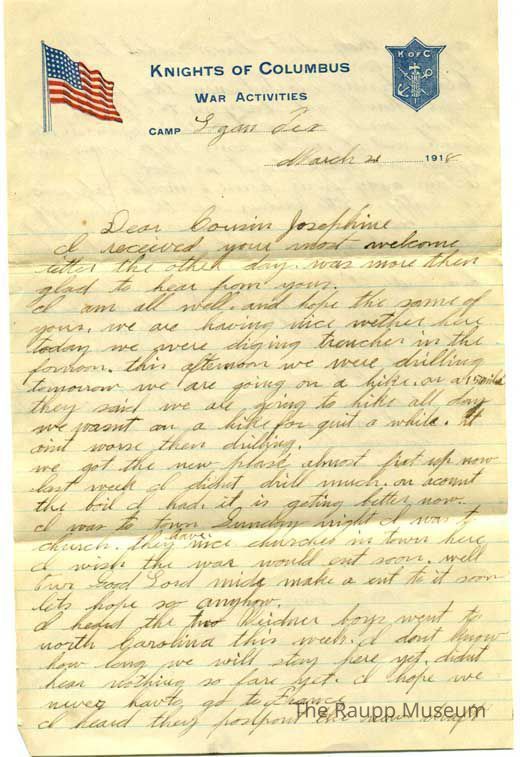 K OF C
KNIGHTS OF COLUMBUS
WAR ACTIVITIES
CAMP Logan Tex
March 21 1918
Dear Cousin Josephine
I received your most welcome
letter the other day. was more then
glad to hear from you.
I am all well. and hope the same of
yours. we are having nice wether here
today we were diging trenches in the
forenoon. this afternoon we were drilling
tomorrow we are going on a hike. or a 15 mile
they said we are going to hike all day
we wasnt on a hike for quit a while. it
aint worse then drilling.
we got the new place almost fixt up now
last week I didnt drill much. on acount
the boil I had. it is geting better now.
I was to town Sunday night I was to
church. they have nice churches in town here
I wish the war would ent soon. well
Good Lord make a ent to it soon
lets hope so anyhow.
I heard the two Weidner boys went to
north Carolina this week. I dont know
how long we will stay here yet. didnt
hear nothing so fare yet. I hope we
never have to go to France
I heard they postpont the new draft
The Raupp Museum